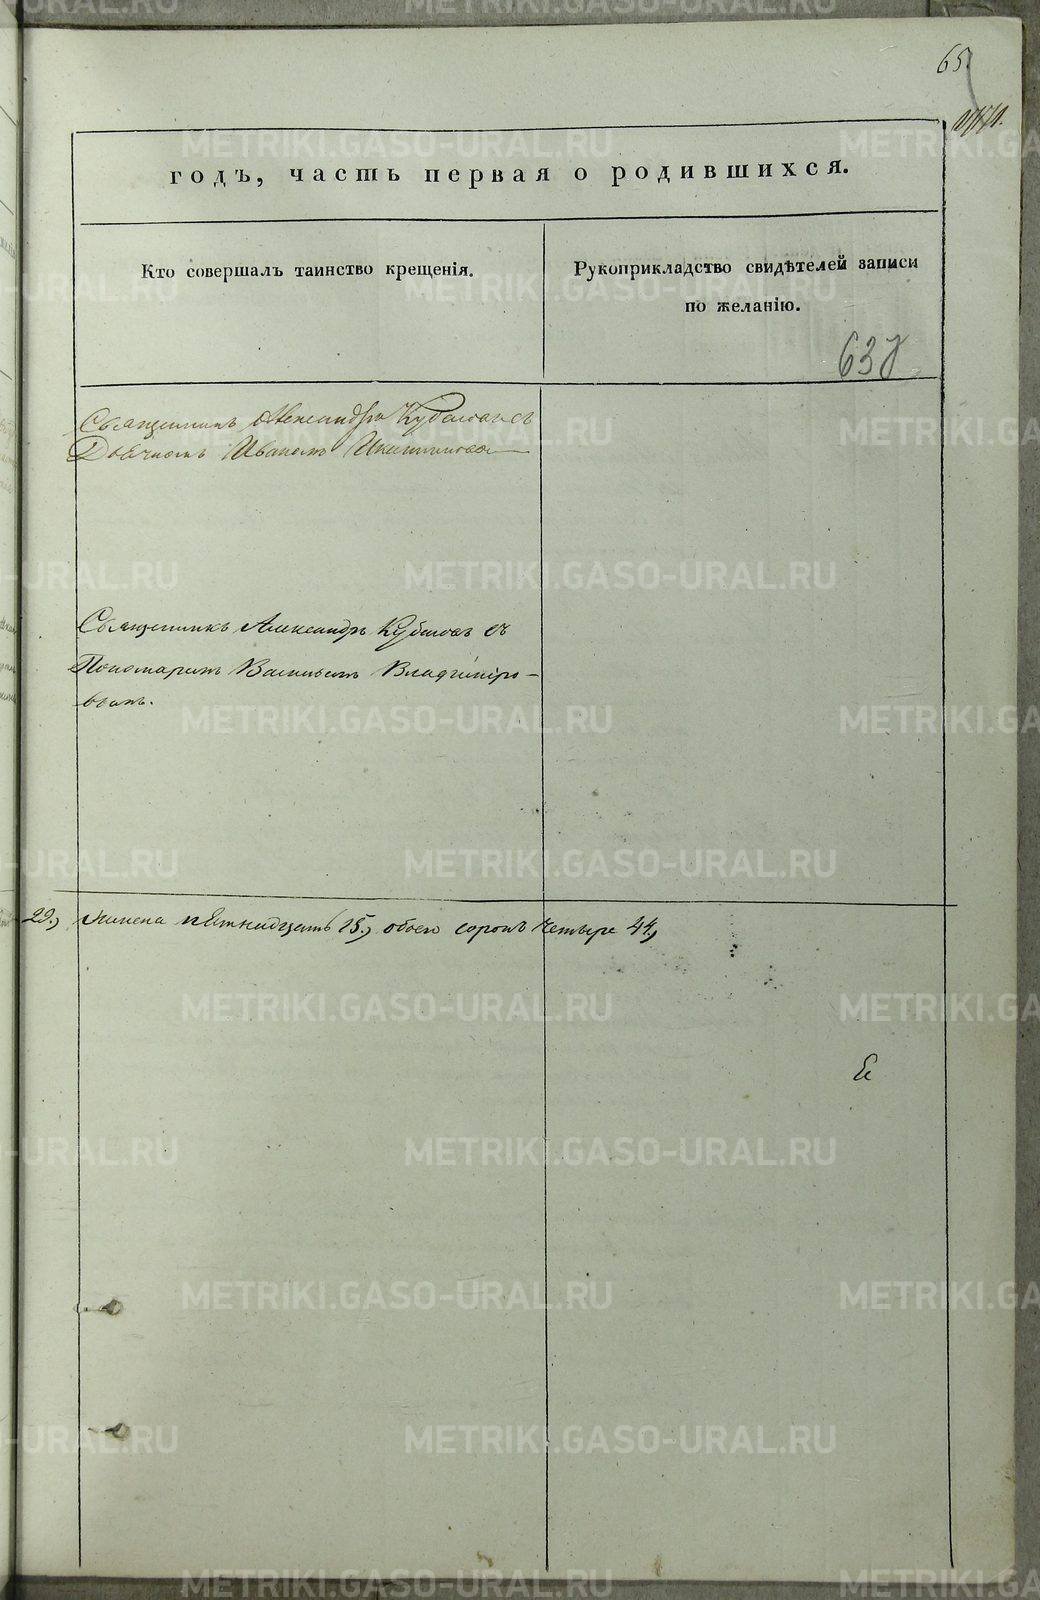 65.
годъ, часть первая о родившихся.
Кто совершалъ таинство крещенія.
Рукоприкладство свидѣтелей записи
по желанію.
638
Священникъ Александръ Кубасовъ съ
Дьячкомъ Иваномъ
Священникъ Александръ Кубасовъ съ
Пономаремъ Васильемъ Владиміро-
вымъ.
29., женска пятнадцать 15., обоего сорокъ четыре 44,
METRIKI.GASO-URAL.RU